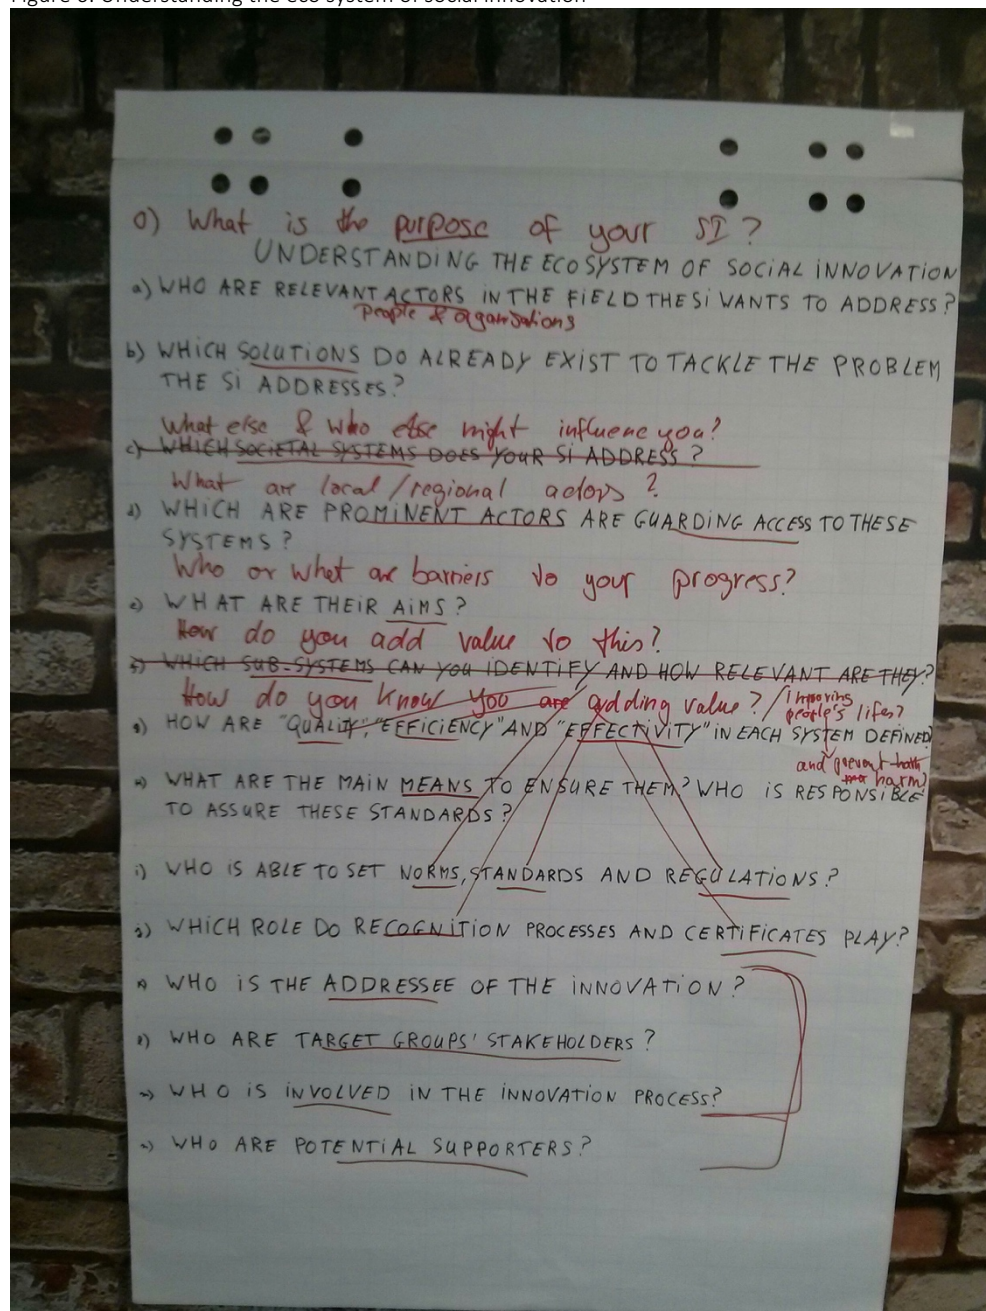 0) What is the purpose of your SI?
UNDERSTANDING THE ECOSYSTEM OF SOCIAL INNOVATION
a) WHO ARE RELEVANT ACTORS IN THE FIELD THE SI WANTS TO ADDRESS?
People & organisations
b) WHICH SOLUTIONS DO ALREADY EXIST TO TACKLE THE PROBLEM
THE SI ADDRESSES?
What else & who else might influence you?
c) WHICH SOCIETAL SYSTEMS DOES YOUR SI ADDRESS?
What are local/regional actors?
d) WHICH ARE PROMINENT ACTORS ARE GUARDING ACCESS TO THESE
SYSTEMS?
Who or what are barriers to your progress?
e) WHAT ARE THEIR AIMS?
How do you add value to this?
f) WHICH SUB-SYSTEMS CAN YOU IDENTIFY AND HOW RELEVANT ARE THEY?
How do you know you are adding value? / improving
people's lifes?
g) HOW ARE "QUALITY", "EFFICIENCY" AND "EFFECTIVITY" IN EACH SYSTEM DEFINED?
and prevent
harm?
h) WHAT ARE THE MAIN MEANS TO ENSURE THEM? WHO IS RESPONSIBLE
TO ASSURE THESE STANDARDS?
i) WHO IS ABLE TO SET NORMS, STANDARDS AND REGULATIONS?
j) WHICH ROLE DO RECOGNITION PROCESSES AND CERTIFICATES PLAY?
k) WHO IS THE ADDRESSEE OF THE INNOVATION?
l) WHO ARE TARGET GROUPS' STAKEHOLDERS?
m) WHO IS INVOLVED IN THE INNOVATION PROCESS?
n) WHO ARE POTENTIAL SUPPORTERS?